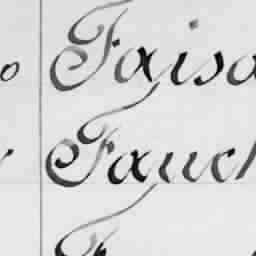 Faisa
Fauch